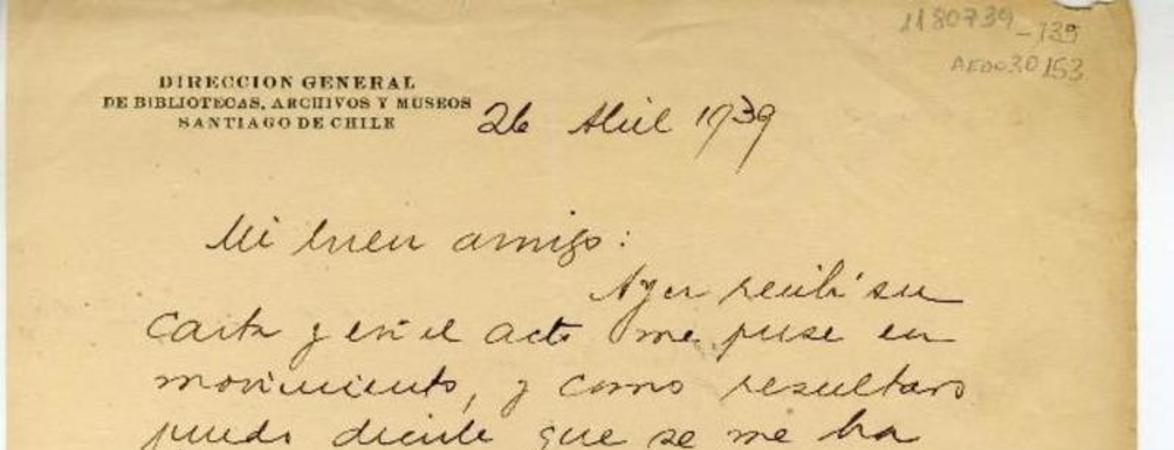 1180739 - 139
AE0030153
DIRECCION GENERAL
DE BIBLIOTECAS, ARCHIVOS Y MUSEOS
SANTIAGO DE CHILE
26 Abril 1939
Mi buen amigo:
Ayer recibí su
carta y en el acto me puse en
movimiento, y como resultado
puedo decirle que se me ha